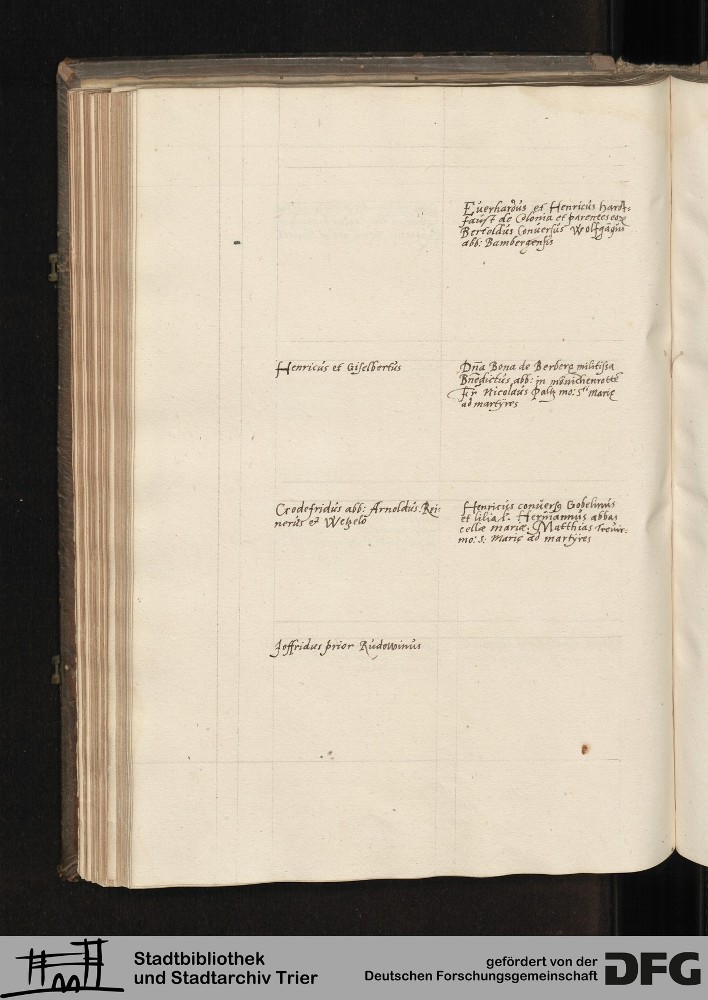 Euerhardus et Henricus hardt-
faust de Colonia et parentes eoꝝ
Bertoldus Conuersus Wolfgãgus
abb: Bambergensis
Henricus et Giselbertus
Dña Bona de Berberg militissa
Bñedictus abb: in mönichenrotte
Fr Nicolaus Paltz mo: S. Marię
ad martyres
Godefridus abb: Arnoldus. Rei-
nerus et Wetzelo
Henricus conuersꝰ Gobelinus
et lilia l. Hermannus abbas
cellæ mariæ. Matthias Treuir:
mo: S. Marię ad martyres
Joffridus prior Rudowinus
Stadtbibliothek
und Stadtarchiv Trier
gefördert von der
Deutschen Forschungsgemeinschaft
DFG